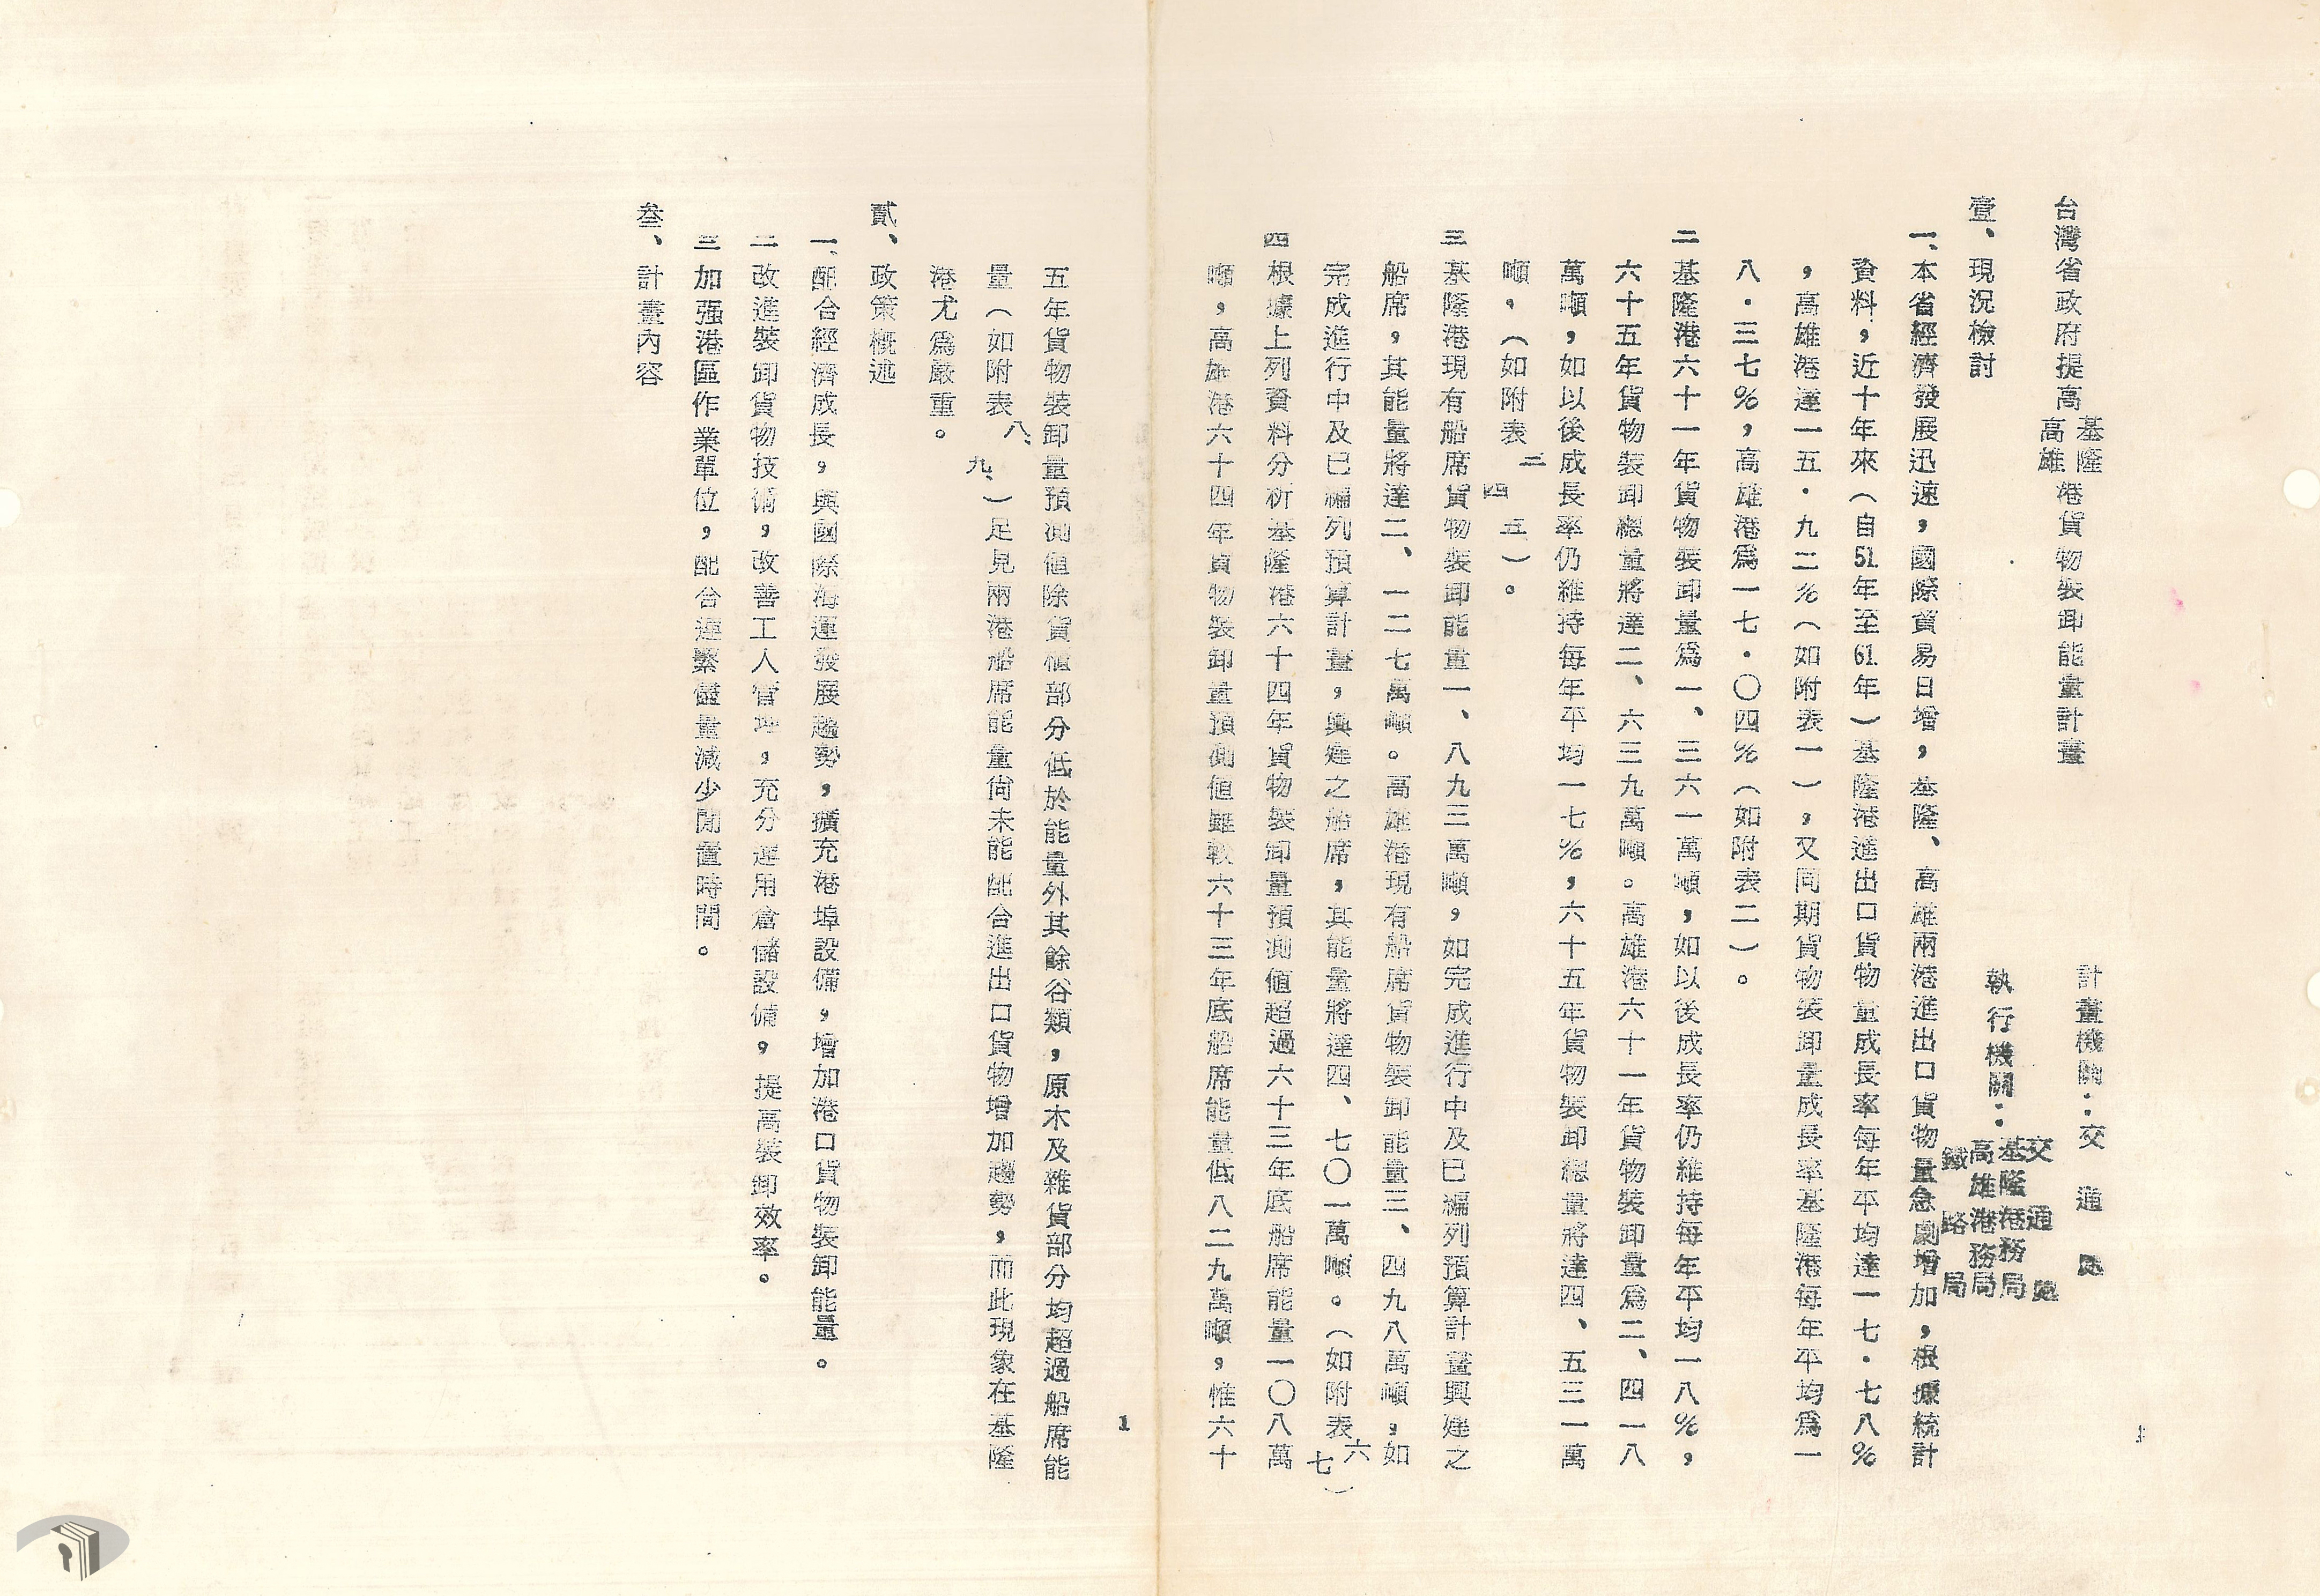 台灣省政府提高基隆高雄港貨物裝卸能量計畫
計畫機關：交通處
執行機關：
交通處
基隆港務局
高雄港務局
鐵路局
壹、現況檢討
一、本省經濟發展迅速，國際貿易日增，基隆、高雄兩港進出口貨物量急劇增加，根據統計
資料，近十年來（自51年至61年）基隆港進出口貨物量成長率每年平均達一七·七八％
，高雄港達一五·九二％（如附表一），又同期貨物裝卸量成長率基隆港每年平均為一
八·三七％，高雄港為一七·〇四％（如附表二）。
二 基隆港六十一年貨物裝卸量為一、三六一萬噸，如以後成長率仍維持每年平均一八％，
六十五年貨物裝卸總量將達二、六三九萬噸。高雄港六十一年貨物裝卸量為二、四一八
萬噸，如以後成長率仍維持每年平均一七％，六十五年貨物裝卸總量將達四、五三一萬
噸，（如附表三四五）。
三 基隆港現有船席貨物裝卸能量一、八九三萬噸，如完成進行中及已編列預算計畫興建之
船席，其能量將達二、一二七萬噸。高雄港現有船席貨物裝卸能量三、四九八萬噸，如
完成進行中及已編列預算計畫，興建之船席，其能量將達四、七〇一萬噸。（如附表六七）
四 根據上列資料分析基隆港六十四年貨物裝卸量預測值超過六十三年底船席能量一〇八萬
噸，高雄港六十四年貨物裝卸量預測值雖較六十三年底船席能量低八二九萬噸，惟六十
1
五年貨物裝卸量預測值除貨櫃部分低於能量外其餘谷類，原木及雜貨部分均超過船席能
量（如附表八、九、）足見兩港船席能量尚未能配合進出口貨物增加趨勢，而此現象在基隆
港尤為嚴重。
貳、政策概述
一、配合經濟成長，與國際海運發展趨勢，擴充港埠設備，增加港口貨物裝卸能量。
二 改進裝卸貨物技術，改善工人管理，充分運用倉儲設備，提高裝卸效率。
三 加强港區作業單位，配合連繫儘量減少閒置時間。
叁、計畫內容